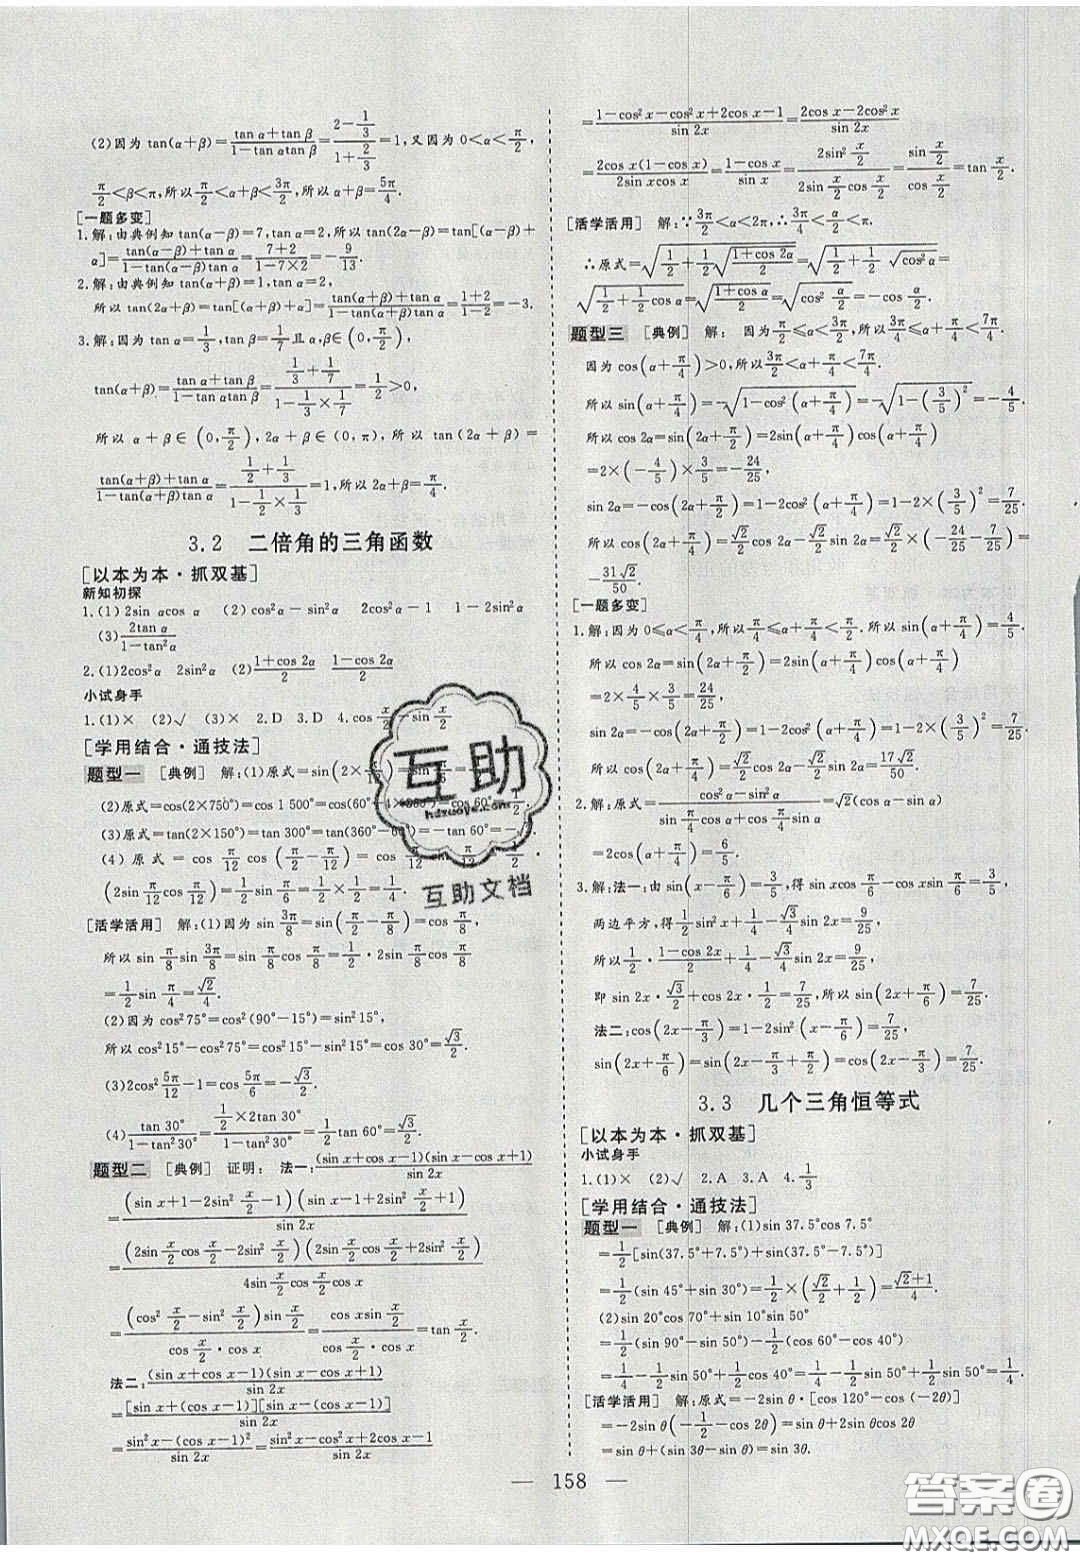 (2)因为 tan(α+β)=(tan α+tan β)/(1-tan αtan β)=(2-1/3)/(1+2/3)=1,又因为 0<α<π/2,
π/2<β<π,所以 π/2<α+β<3π/2,所以 α+β=5π/4.
[一题多变]
1.解:由典例知 tan(α-β)=7,tan α=2,所以 tan(2α-β)=tan[(α-β)+
α]=(tan(α-β)+tan α)/(1-tan(α-β)tan α)=(7+2)/(1-7×2)=-9/13.
2.解:由典例知 tan(α+β)=1,tan α=2,
所以 tan(2α+β)=tan[(α+β)+α]=(tan(α+β)+tan α)/(1-tan(α+β)tan α)=(1+2)/(1-2)=-3.
3.解:因为 tan α=1/3,tan β=1/7 且 α,β∈(0,π/2),
tan(α+β)=(tan α+tan β)/(1-tan αtan β)=(1/3+1/7)/(1-1/3×1/7)=1/2>0,
所以 α+β∈(0,π/2),2α+β∈(0,π),所以 tan(2α+β)=
(tan(α+β)+tan α)/(1-tan(α+β)tan α)=(1/2+1/3)/(1-1/2×1/3)=1,所以 2α+β=π/4.
3.2 二倍角的三角函数
[以本为本·抓双基]
新知初探
1.(1)2sin αcos α (2)cos²α-sin²α 2cos²α-1 1-2sin²α
(3)2tan α/(1-tan²α)
2.(1)2cos²α 2sin²α (2)(1+cos 2α)/2 (1-cos 2α)/2
小试身手
1.(1)× (2)√ (3)× 2.D 3.D 4.cos x/2-sin x/2
[学用结合·通技法]
题型一 [典例] 解:(1)原式=sin(2×π/
(2)原式=cos(2×750°)=cos 1 500°=cos(60°+4×360°)=cos 60°=1/2.
(3)原式=tan(2×150°)=tan 300°=tan(360°-60°)=-tan 60°=-√3.
(4)原式=cos π/12 cos(π/2-π/12)=cos
(2sin π/12 cos π/12)=1/2 sin π/6=1/2×1/2=1/4.
[活学活用] 解:(1)因为 sin 3π/8=sin(π/2-π/8)=cos π/8,
所以 sin π/8 sin 3π/8=sin π/8 cos π/8=1/2·2sin π/8 cos π/8
=1/2 sin π/4=√2/4.
(2)因为 cos²75°=cos²(90°-15°)=sin²15°,
所以 cos²15°-cos²75°=cos²15°-sin²15°=cos 30°=√3/2.
(3)2cos² 5π/12-1=cos 5π/6=-√3/2.
(4)tan 30°/(1-tan²30°)=(1/2×2tan 30°)/(1-tan²30°)=1/2 tan 60°=√3/2.
题型二 [典例] 证明: 法一:(sin x+cos x-1)(sin x-cos x+1)/sin 2x
=(sin x+1-2sin² x/2-1)(sin x-1+2sin² x/2+1)/sin 2x
=(2sin x/2 cos x/2-2sin² x/2)(2sin x/2 cos x/2+2sin² x/2)/(4sin x/2 cos x/2 cos x)
=(cos² x/2-sin² x/2)sin x/2/(cos x/2·cos x)=cos xsin x/2/(cos x/2·cos x)=tan x/2.
法二:(sin x+cos x-1)(sin x-cos x+1)/sin 2x
=[sin x+(cos x-1)][sin x-(cos x-1)]/sin 2x
=(sin²x-(cos x-1)²)/sin 2x=(sin²x-cos²x+2cos x-1)/sin 2x
=(1-cos²x-cos²x+2cos x-1)/sin 2x=(2cos x-2cos²x)/sin 2x
=2cos x(1-cos x)/2sin xcos x=(1-cos x)/sin x=2sin² x/2/(2sin x/2 cos x/2)=sin x/2/cos x/2=tan x/2.
[活学活用] 解:∵3π/2<α<2π,∴3π/4<α/2<π.
∴原式=√(1/2+1/2√((1+cos 2α)/2))=√(1/2+1/2√(cos²α))=
√(1/2+1/2cos α)=√((1+cos α)/2)=√(cos² α/2)=-cos α/2.
题型三 [典例] 解: 因为 π/2≤α<3π/2,所以 3π/4≤α+π/4<7π/4.
因为 cos(α+π/4)>0,所以 3π/2<α+π/4<7π/4.
所以 sin(α+π/4)=-√(1-cos²(α+π/4))=-√(1-(3/5)²)=-4/5.
所以 cos 2α=sin(2α+π/2)=2sin(α+π/4)cos(α+π/4)
=2×(-4/5)×3/5=-24/25,
sin 2α=-cos(2α+π/2)=1-2cos²(α+π/4)=1-2×(3/5)²=7/25.
所以 cos(2α+π/4)=√2/2 cos 2α-√2/2 sin 2α=√2/2×(-24/25-7/25)=
-31√2/50.
[一题多变]
1.解:因为 0≤α<π/4,所以 π/4≤α+π/4<π/2.所以 sin(α+π/4)=4/5.
所以 cos 2α=sin(2α+π/2)=2sin(α+π/4)cos(α+π/4)
=2×4/5×3/5=24/25,
sin 2α=-cos(2α+π/2)=1-2cos²(α+π/4)=1-2×(3/5)²=7/25.
所以 cos(2α+π/4)=√2/2 cos 2α-√2/2 sin 2α=17√2/50.
2.解:原式=(cos²α-sin²α)/(sin π/4 cos α+cos π/4 sin α)=√2(cos α-sin α)
=2cos(α+π/4)=6/5.
3.解:法一:由 sin(x-π/6)=3/5,得 √3/2 sin x-1/2 cos x=3/5,
两边平方,得 1/2 sin²x+1/4-√3/4 sin 2x=9/25,
所以 1/2·(1-cos 2x)/2+1/4-√3/4 sin 2x=9/25,
即 sin 2x·√3/2+cos 2x·1/2=7/25,所以 sin(2x+π/6)=7/25.
法二:cos(2x-π/3)=1-2sin²(x-π/6)=7/25,
sin(2x+π/6)=sin(2x-π/3+π/2)=cos(2x-π/3)=7/25.
3.3 几个三角恒等式
[以本为本·抓双基]
小试身手
1.(1)× (2)√ 2.A 3.A 4.1/3
[学用结合·通技法]
题型一 [典例] 解:(1)sin 37.5°cos 7.5°
=1/2[sin(37.5°+7.5°)+sin(37.5°-7.5°)]
=1/2(sin 45°+sin 30°)=1/2×(√2/2+1/2)=(√2+1)/4.
(2)sin 20°cos 70°+sin 10°sin 50°
=1/2(sin 90°-sin 50°)-1/2(cos 60°-cos 40°)
=1/2-1/4-1/2 sin 50°+1/2 cos 40°=1/4-1/2 sin 50°+1/2 sin 50°=1/4.
[活学活用] 解:原式=-2sin θ·[cos 120°-cos(-2θ)]
=-2sin θ(-1/2-cos 2θ)=sin θ+2sin θcos 2θ
=sin θ+(sin 3θ-sin θ)=sin 3θ.
— 158 —
互助
hdzuoye.com
互助文档
答案圈
MXQE.COM